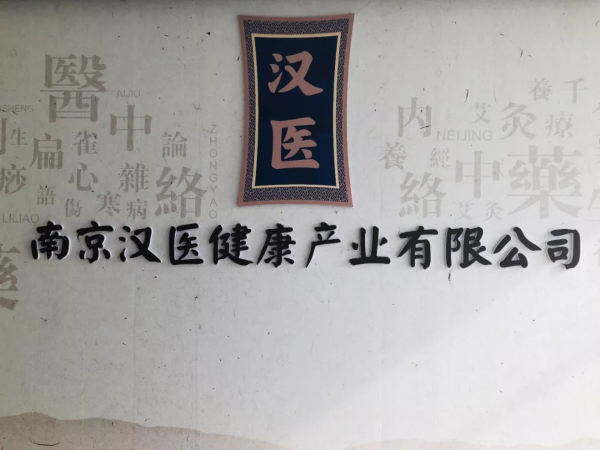 汉医
南京汉医健康产业有限公司
醫
AIJIU
中
論
ZHONGYAO
生
扁
雀
心
雜
絡
痧
語
傷
寒
病
LILIAO
内
NEIJING
艾
灸
養
療
千
養
經
中
藥
絡
艾灸